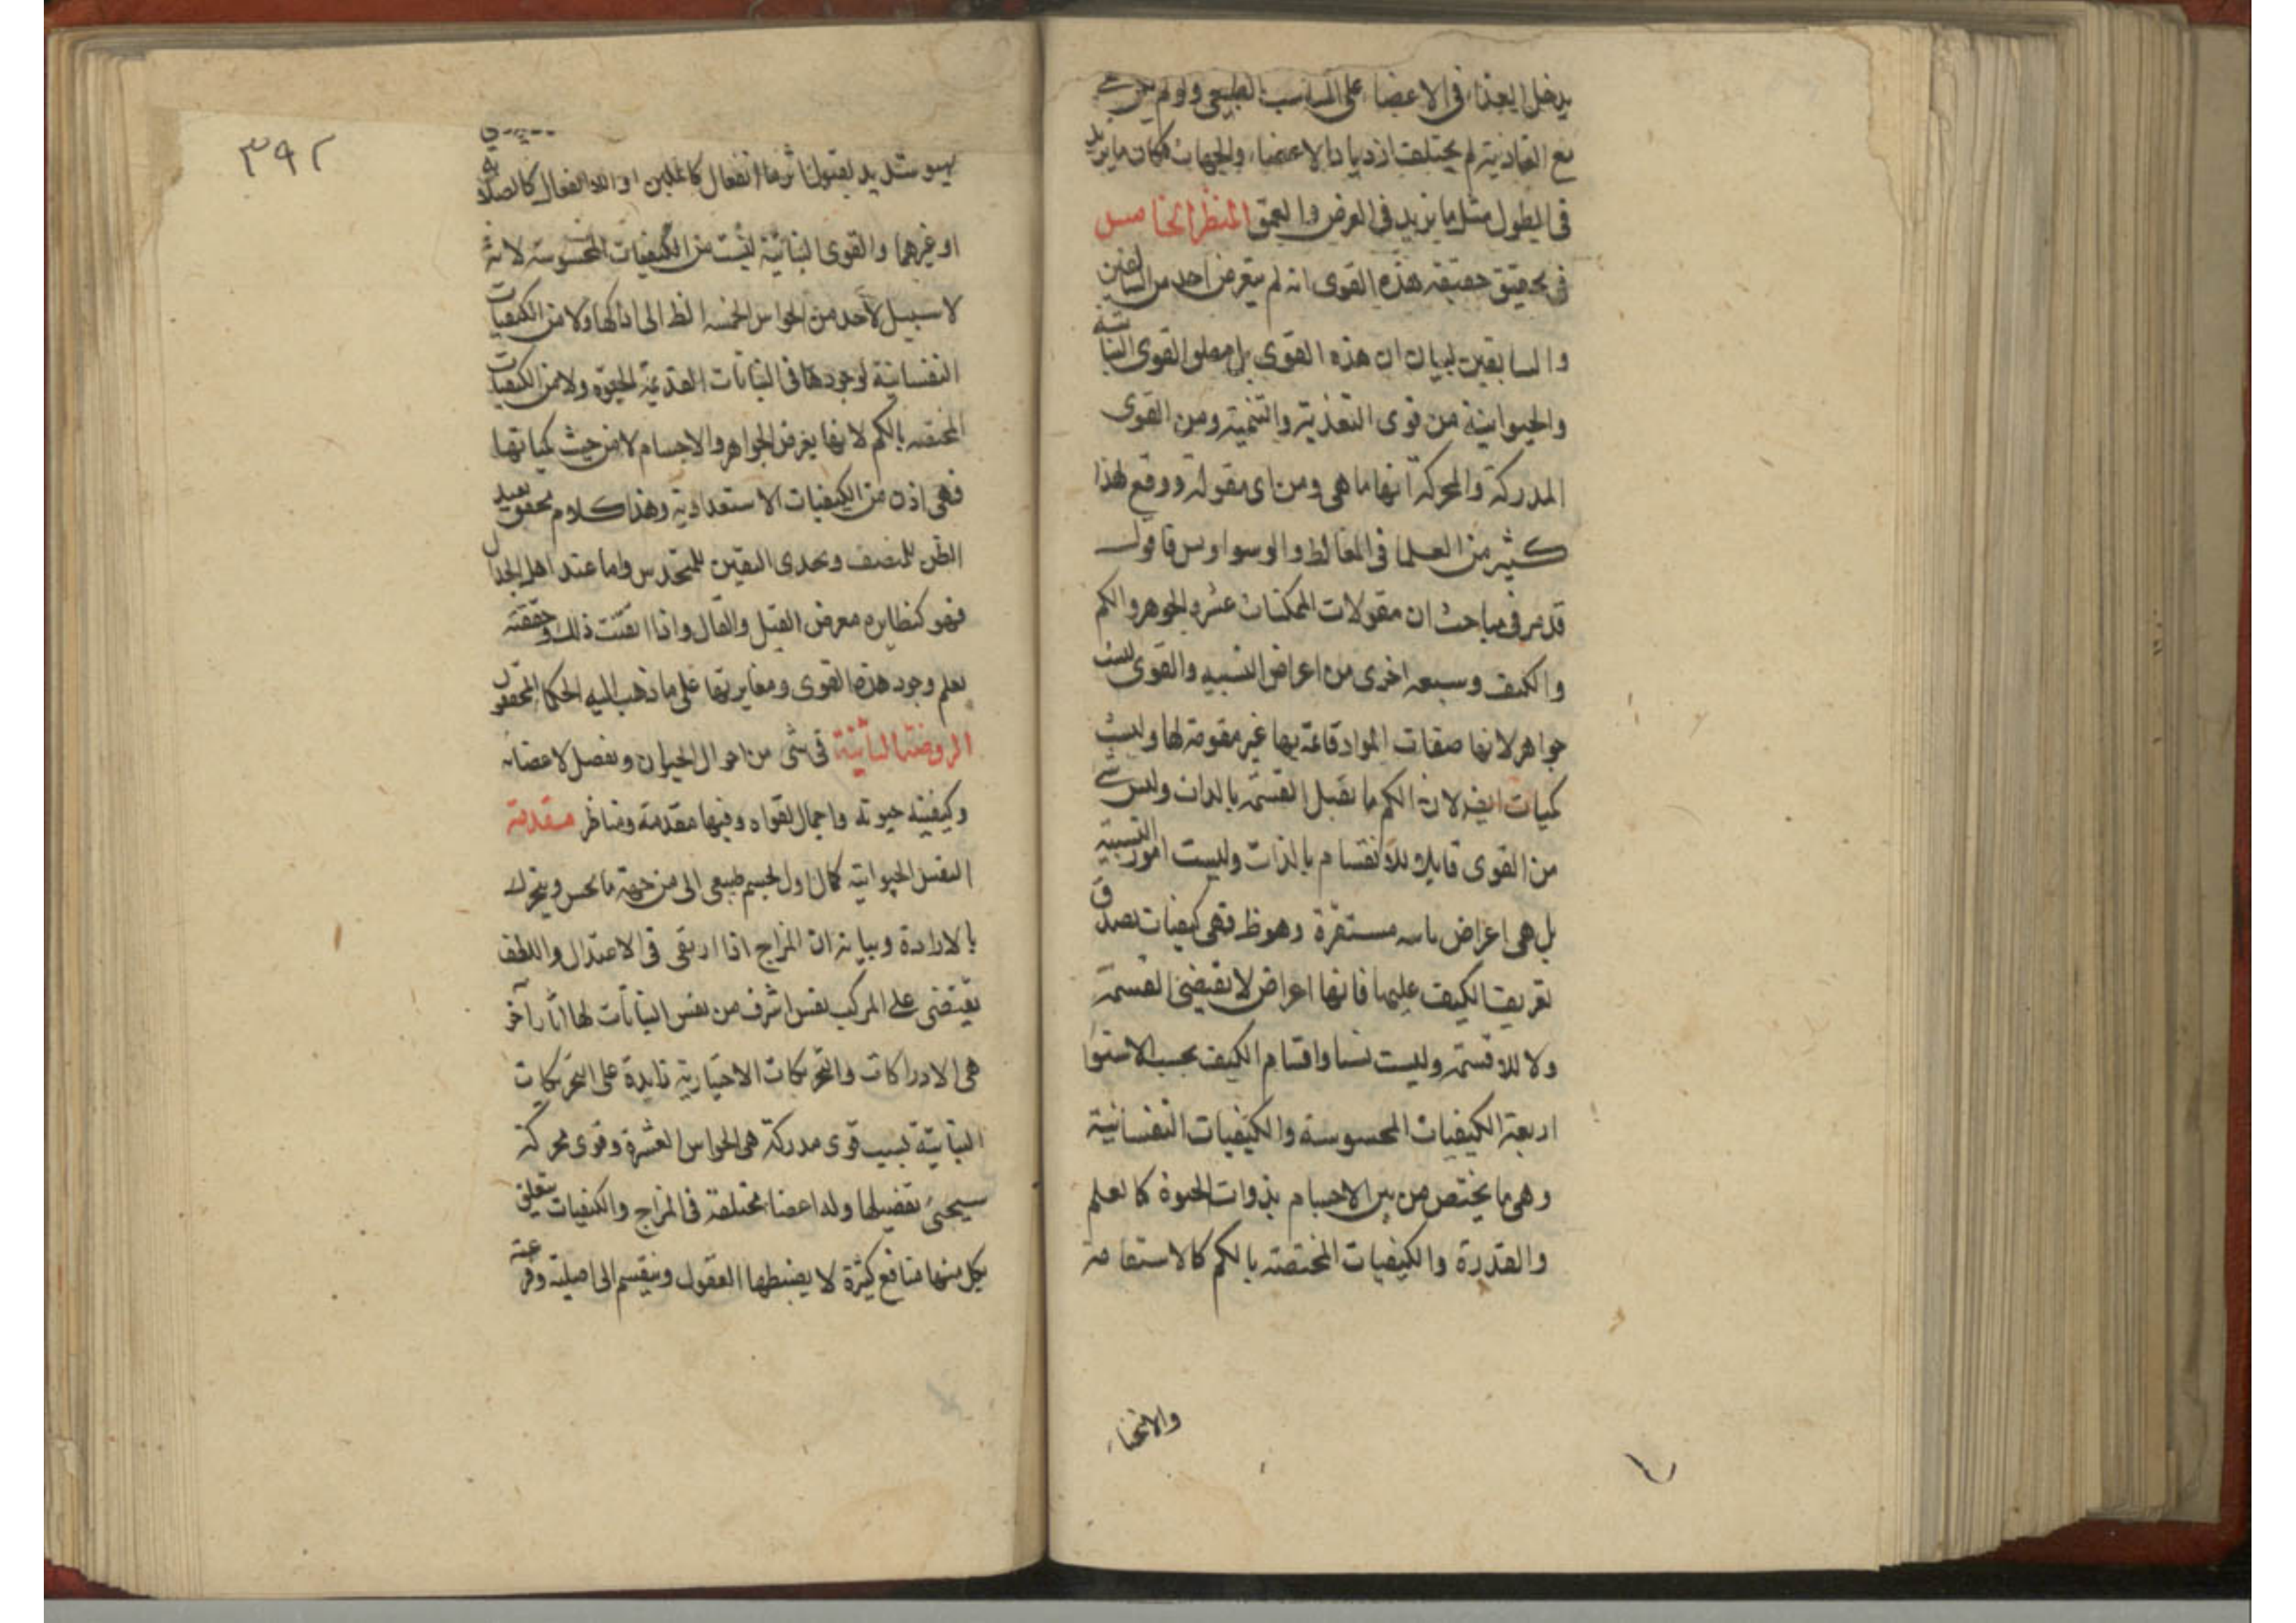 يدخل الغذاء فى الاعضاء على التناسب الطبيعى ولو لم يكن
مع الغاذية لم يختلف ازدياد الاعضاء والجهات فكان ما يزيد
فى الطول مثل ما يزيد فى العرض والعمق المنظر الخامس
فى تحقيق حقيقة هذه القوى انه لم يتعرض احد من
والسابقين لبيان ان هذه القوى بل مطلق القوى النباتية
والحيوانية من قوى التغذية والتنمية ومن القوى
المدركة والمحركة انها ما هى ومن اى مقولة ووقع لهذا
كثير من العلما فى المغالط والوسواوس فاقول
قد مر فى مباحث ان مقولات الممكنات عشر الجوهر والكم
والكيف وسبعه اخرى من اعراض النسبيه والقوى ليست
جواهر لانها صفات المواد قائمة بها غير مقومة لها وليست
كميات ايضا لان الكم ما يقبل القسمة بالذات وليس شى
من القوى قابلا للانقسام بالذات وليست امور النسبية
بل هى اعراض مستقرة وهو ظ فهى كيفيات يصدق
تعريف الكيف عليها فانها اعراض لا تقتضى القسمة
ولا للا قسمة وليست نسبا واقسام الكيف بحسب الاستقرا
اربعة الكيفيات المحسوسة والكيفيات النفسانية
وهى ما يختص من بين الاجسام بذوات الحيوة كالعلم
والقدرة والكيفيات المختصة بالكم كالاستقامة
والانحناء
٣٩٢
تهيو شديد لقبول اثر ما انفعال كاللين او اللا انفعال كالصلابة
او غيرهما والقوى النباتية ليست من الكيفيات المحسوسة لانه
لا سبيل لاحد من الحواس الخمسه الظ الى ادراكها ولا من الكيفيات
النفسانية لوجودها فى النباتات العديمة الحيوة ولا من الكيفيات
المختصه بالكم لانها يعرض الجواهر والاجسام لا من حيث كمياتها
فهى اذن من الكيفيات الاستعدادية وهذا كلام محقق يفيد
الظن للمنصف ويجدى اليقين للمتحدس واما عند اهل الجدال
فهو كنظايره معرض القيل والقال واذا اتقنت ذلك وحققته
تعلم وجود هذه القوى ومغايرتها على ما ذهب اليه الحكما المحققون
الروضة الثانية فى شى من احوال الحيوان وتفصيل لاعضائه
وكيفية حيوته واجمال لقواه وفيها مقدمة ومناظر مقدمة
النفس الحيوانية كمال اول لجسم طبيعى الى من جهة ما يحس ويتحرك
بالارادة وبيانه ان المزاج اذا ارتقى فى الاعتدال واللطف
يقتضى على المركب نفس اشرف من نفس النباتات لها اثار آخر
هى الادراكات والتحريكات الاختيارية زايدة على التحريكات
النباتية بسبب قوى مدركة هى الحواس العشرة وقوى محركة
سيجىء تفصيلها وله اعضا مختلفة فى المزاج والكيفيات يتعلق
بكل منها منافع كثيرة لا يضبطها العقول وينقسم الى اصلية وفرعية